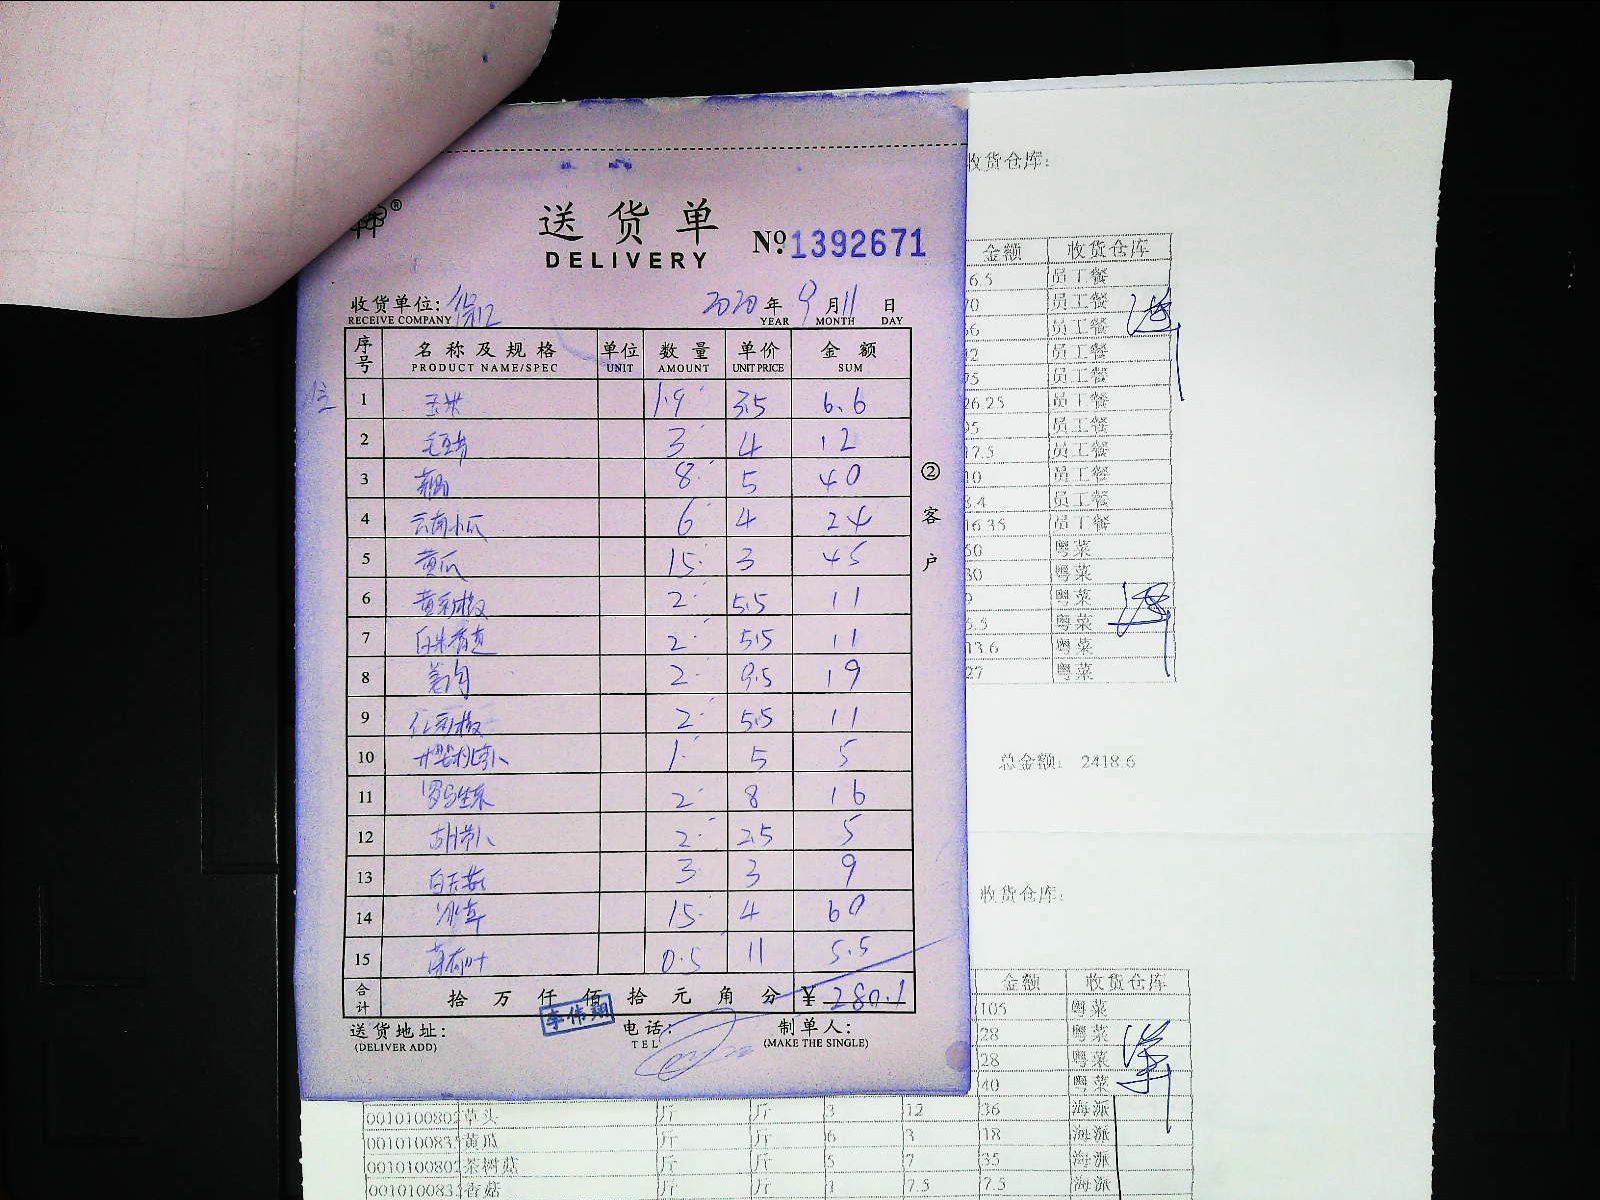 收货仓库：
送货单
DELIVERY
№ 1392671
收货单位：
RECEIVE COMPANY
2020 年 9 月 11 日
YEAR MONTH DAY
序号 名称及规格 单位 数量 单价 金额
PRODUCT NAME/SPEC UNIT AMOUNT UNIT PRICE SUM
1 玉米 1.9 3.5 6.6
2 3 4 12
3 8 5 40
4 云南小瓜 6 4 24
5 黄瓜 15 3 45
6 黄彩椒 2 5.5 11
7 2 5.5 11
8 2 9.5 19
9 红彩椒 2 5.5 11
10 1 5 5
11 罗马生菜 2 8 16
12 胡萝卜 2 2.5 5
13 3 3 9
14 冰草 15 4 60
15 薄荷叶 0.5 11 5.5
合计 拾 万 仟 佰 拾 元 角 分 ¥ 280.1
李伟翔
送货地址： 电话： 制单人：
(DELIVER ADD) TEL (MAKE THE SINGLE)
②客户
金额 收货仓库
6.5 员工餐
70 员工餐
66 员工餐
员工餐
75 员工餐
26.25 员工餐
95 员工餐
17.5 员工餐
10 员工餐
8.4 员工餐
16.35 员工餐
60 粤菜
80 粤菜
粤菜
5.5 粤菜
13.6 粤菜
27 粤菜
总金额： 2418.6
收货仓库：
金额 收货仓库
105 粤菜
28 粤菜
28 粤菜
40 粤菜
0010100802 草头 斤 斤 3 12 36 海派
001010083 黄瓜 斤 斤 6 3 18 海派
0010100802 茶树菇 斤 斤 5 7 35 海派
001010083 香菇 斤 斤 1 7.5 7.5 海派